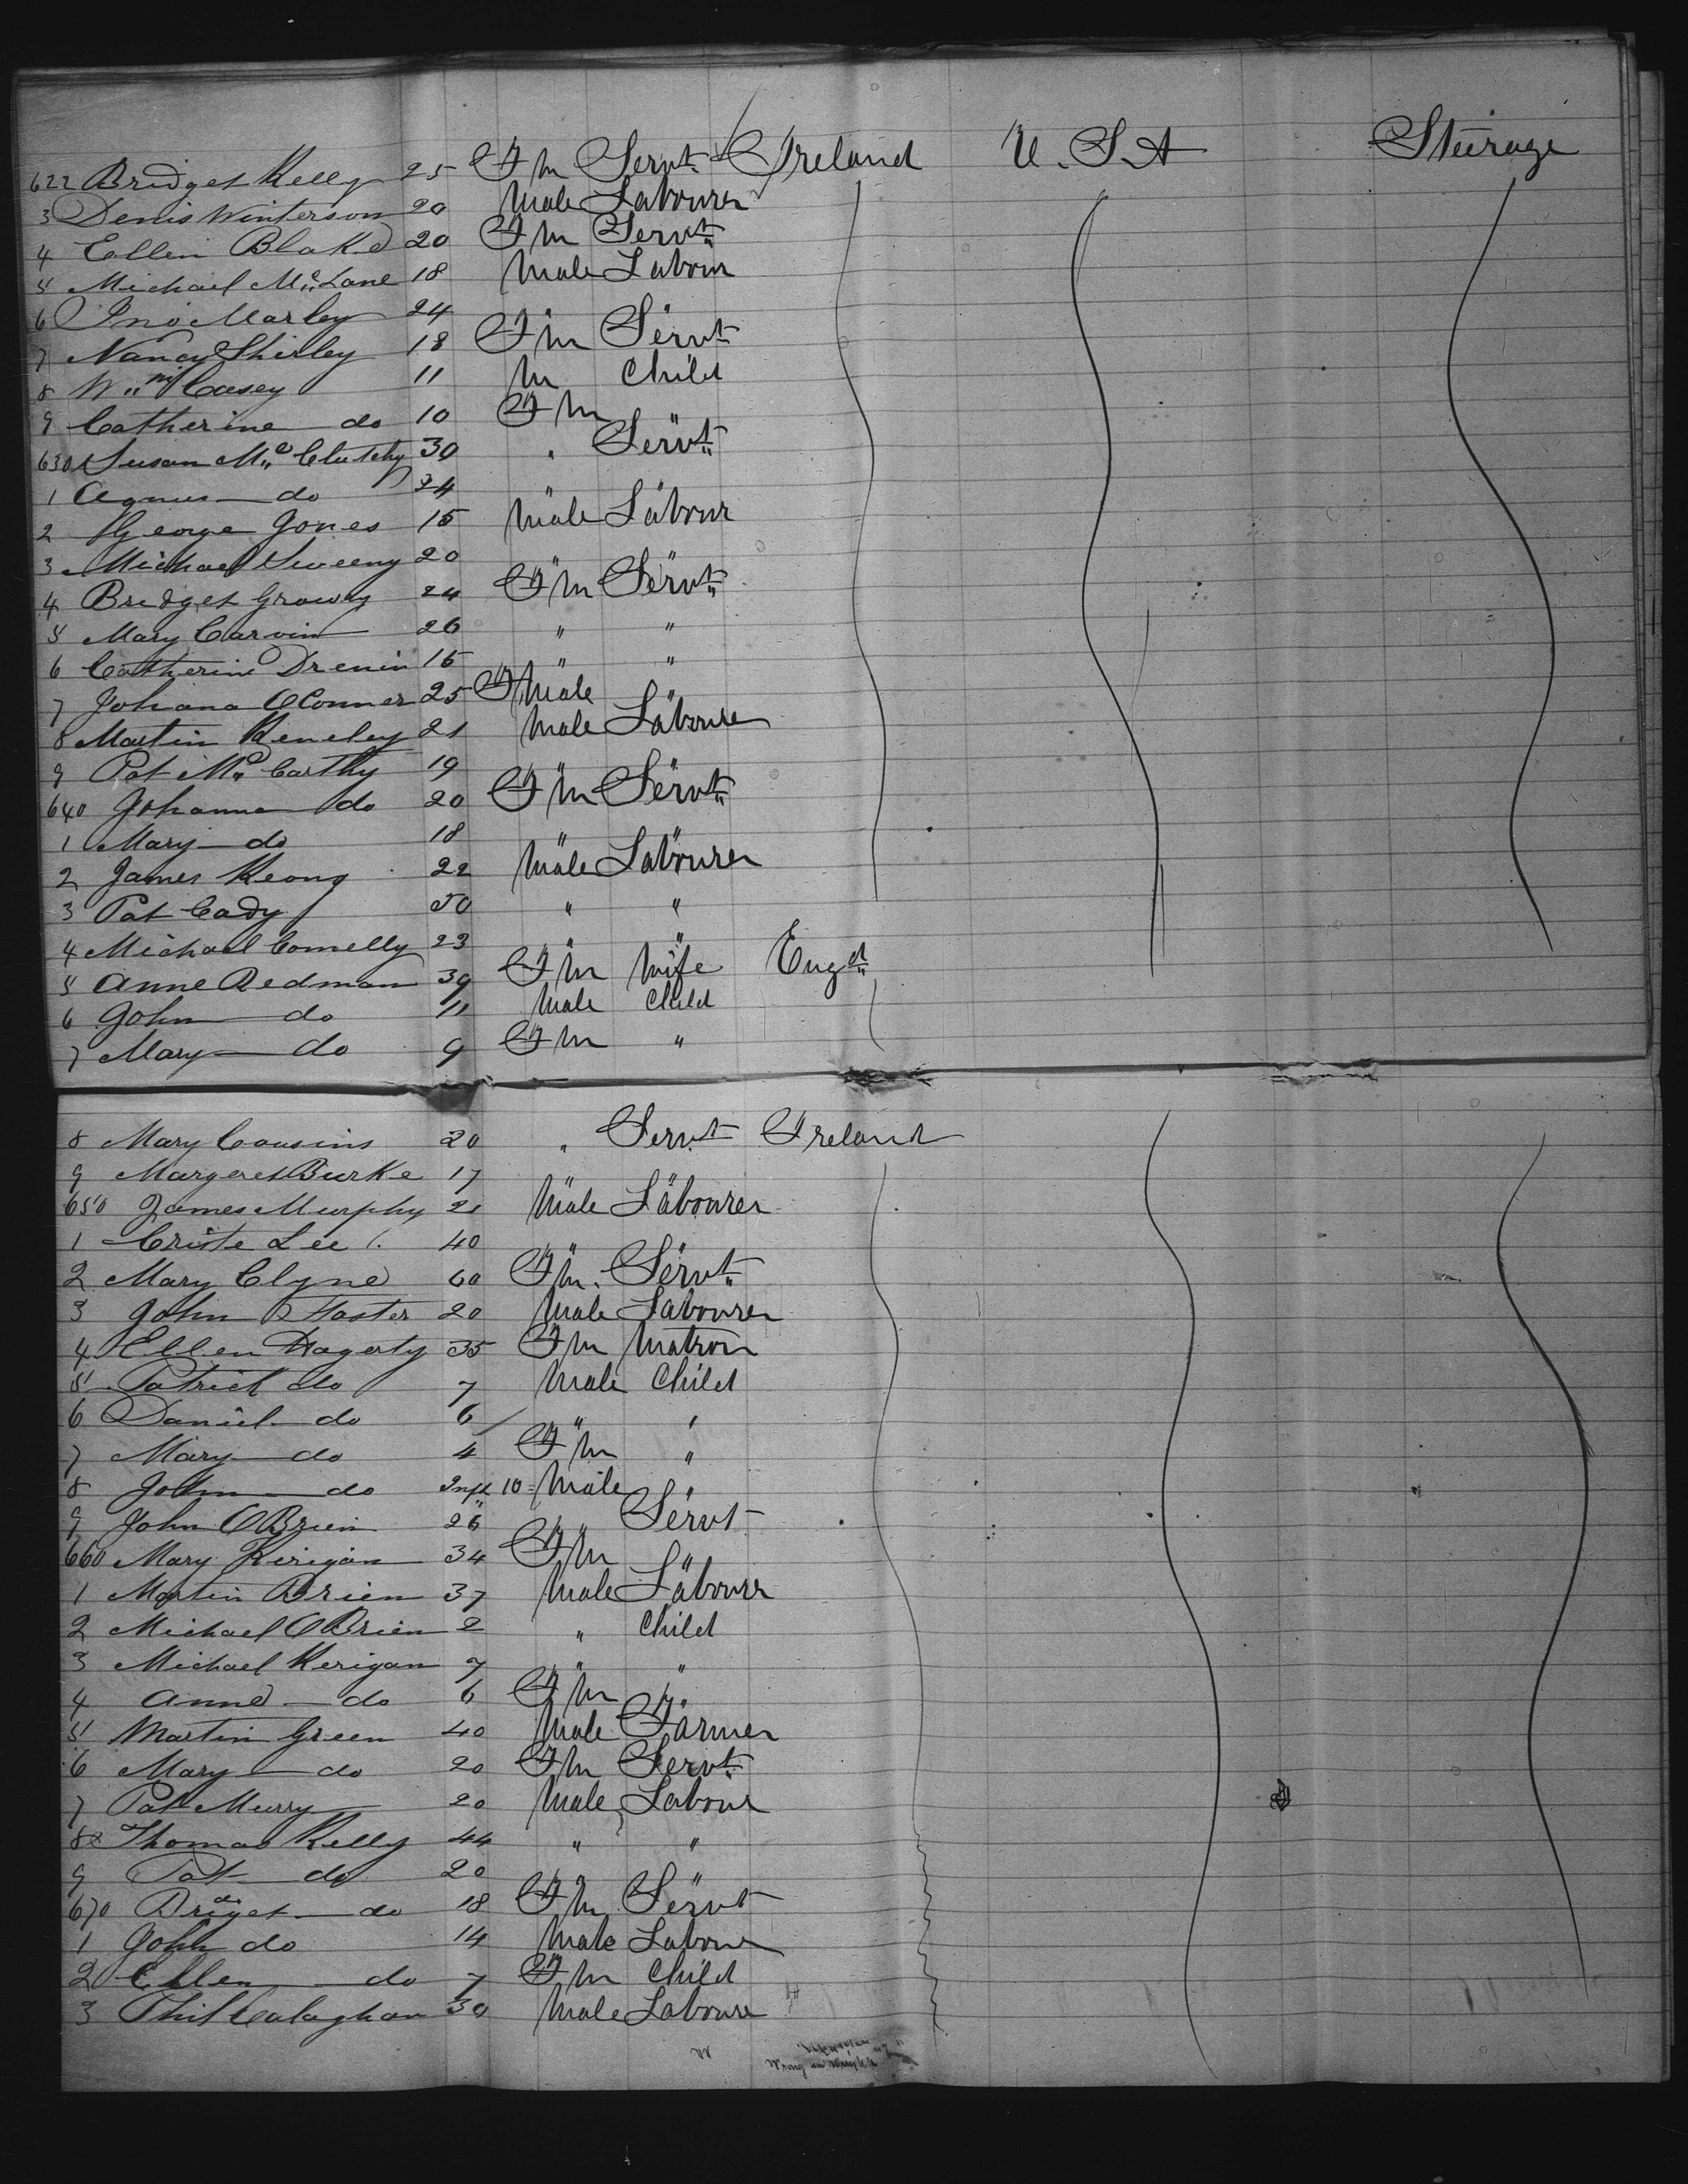 622 Bridget Kelly 25 Fm Servt Ireland U.S.A Steerage
3 Denis Winterson 20 Male Labourer
4 Ellen Blake 20 Fm Servt
5 Michael Mc Lane 18 Male Labour
6 Jno Marley 24 " "
7 Nancy Shirley 18 Fm Servt
8 Wm Casey 11 M Child
9 Catherine do 10 Fm "
630 Susan Mc Clutchy 30 " Servt
1 Agnus do 24 " "
2 George Jones 15 Male Labour
3 Michael Sweeny 20 " "
4 Bridget Growny 24 Fm Servt
5 Mary Carvin 26 " "
6 Catherine Drenin 15 " "
7 Johana OConner 25 F Male "
8 Martin Keneley 21 Male Laboure
9 Pat Mc Carthy 19 " "
640 Johanna do 20 Fm Servt
1 Mary do 18 " "
2 James Keong 22 Male Labourer
3 Pat Cady 50 " "
4 Michael Connelly 23 " "
5 Anne Redman 39 Fm Wife Engd
6 John do 11 Male Child
7 Mary do 9 Fm "
8 Mary Cousins 20 " Servt Ireland
9 Margeret Burke 17 " "
650 James Murphy 21 Male Labourer
1 Criste Lee 40 " "
2 Mary Clyne 60 Fm. Servt
3 John Haster 20 Male Labourer
4 Ellen Hagerty 35 Fm Matron
5 Patrick do 7 Male Child
6 Daniel do 6 " "
7 Mary do 4 Fm "
8 John do Inft 10 Male "
9 John OBrien 26 " Servt
660 Mary Kerigan 34 Fm "
1 Martin Brien 37 Male Labourer
2 Michael OBrien 2 " Child
3 Michael Kerigan 7 " "
4 Anne do 6 Fm "
5 Martin Green 40 Male Farmer
6 Mary do 20 Fm Servt
7 Pat Murry 20 Male Labour
8 Thomas Kelly 44 " "
9 Pat do 20 " "
670 Briget do 18 Fm Servt
1 John do 14 Male Laboure
2 Ellen do 7 Fm Child
3 Phil Calaghan 30 Male Laboure